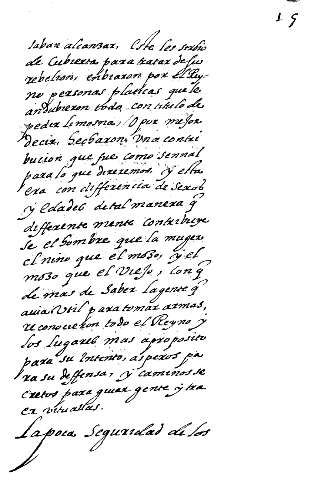 15
saban alcanzar, Este les sirbio
de Cubierta para tratar de su
rebelion, enbiaron por el Rey-
no personas platicas que le
andubieron todo con titulo de
pedir limosna, O por mejor
decir, hecharon, una contri
bucion que fue como sennal
para lo que diremos, y esta
era con differencia de sexos
y edades de tal manera q
differente mente contribuye
se el hombre que la muger,
el niño que el mozo, y el
mozo que el viejo, con q
de mas de saber la gente q
avia util para tomar armas,
reconocieron todo el Reyno y
los lugares mas aproposito
para su intento, asperos pa
ra su deffensa, y caminos se
cretos para guiar gente y tra
er vituallas.
La poca seguridad de los